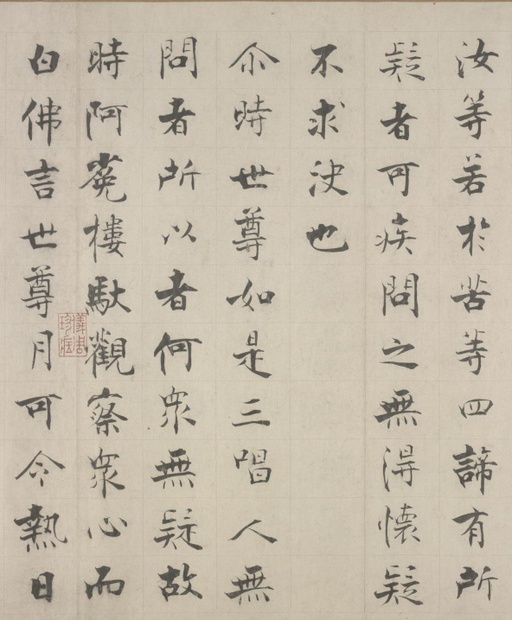 汝等若於苦等四諦有所
疑者可疾問之無淂懷疑
不求決也
尒時世尊如是三唱人無
問者所以者何衆無疑故
時阿㝹樓馱觀察衆心而
白佛言世尊月可令熱日